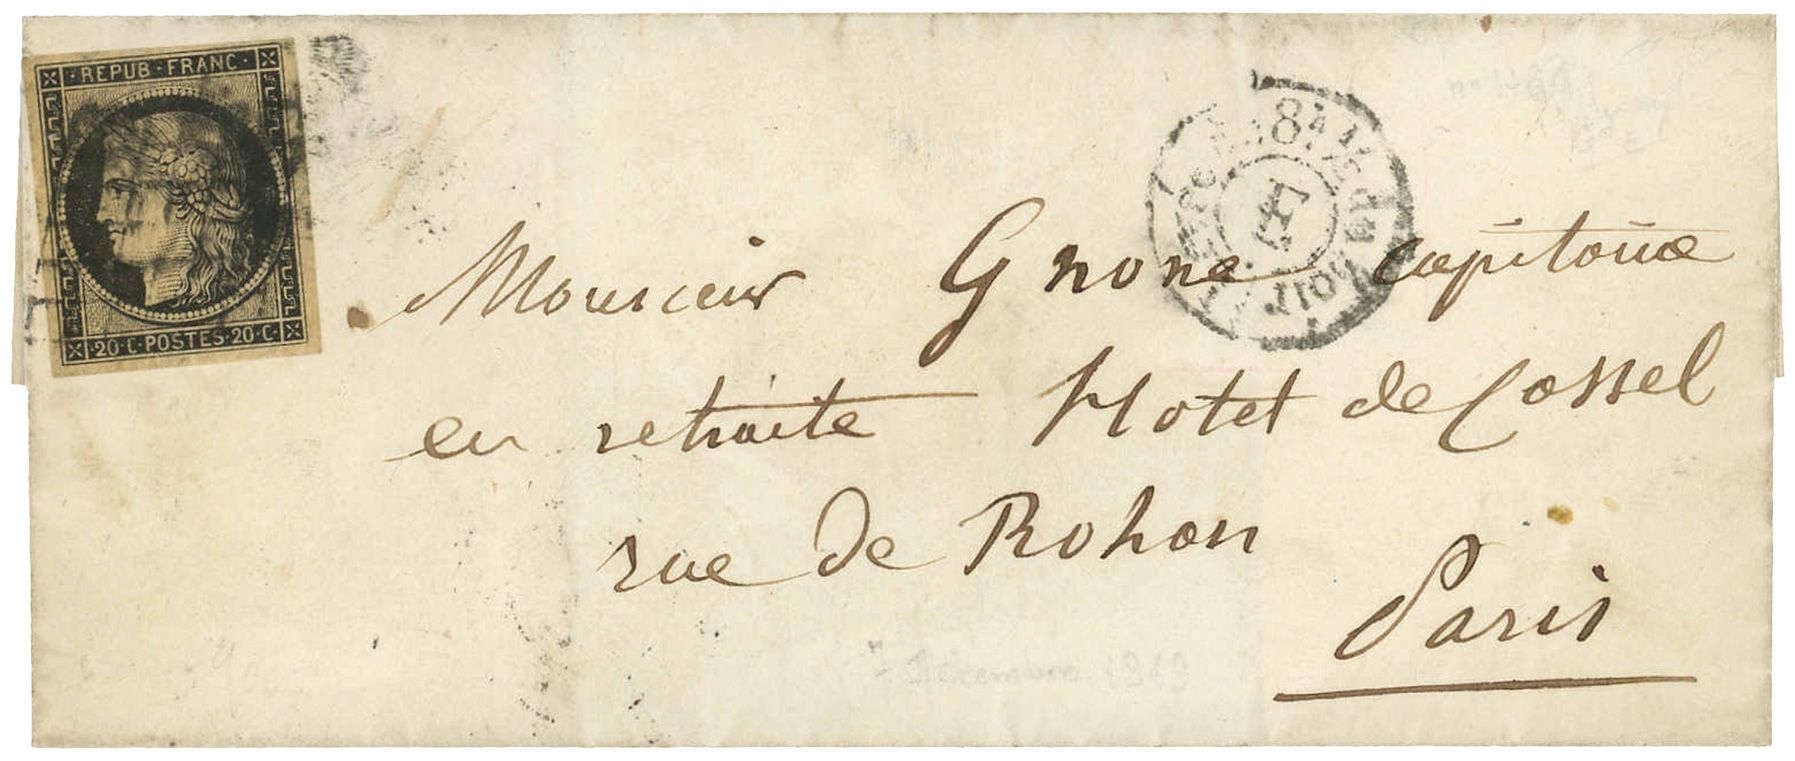 REPUB·FRANC·
20·C·POSTES·20·C·
8
Monsieur Gnone capitaine
en retraite Hotel de Cassel
rue de Rohan
Paris
7 Décembre 1849